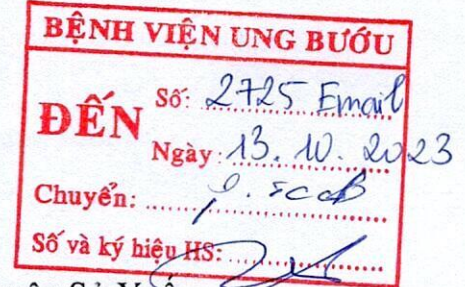 BỆNH VIỆN UNG BƯỚU
ĐẾN
Số: 2725 Email
Ngày: 13. 10. 2023
Chuyển:
Số và ký hiệu HS: